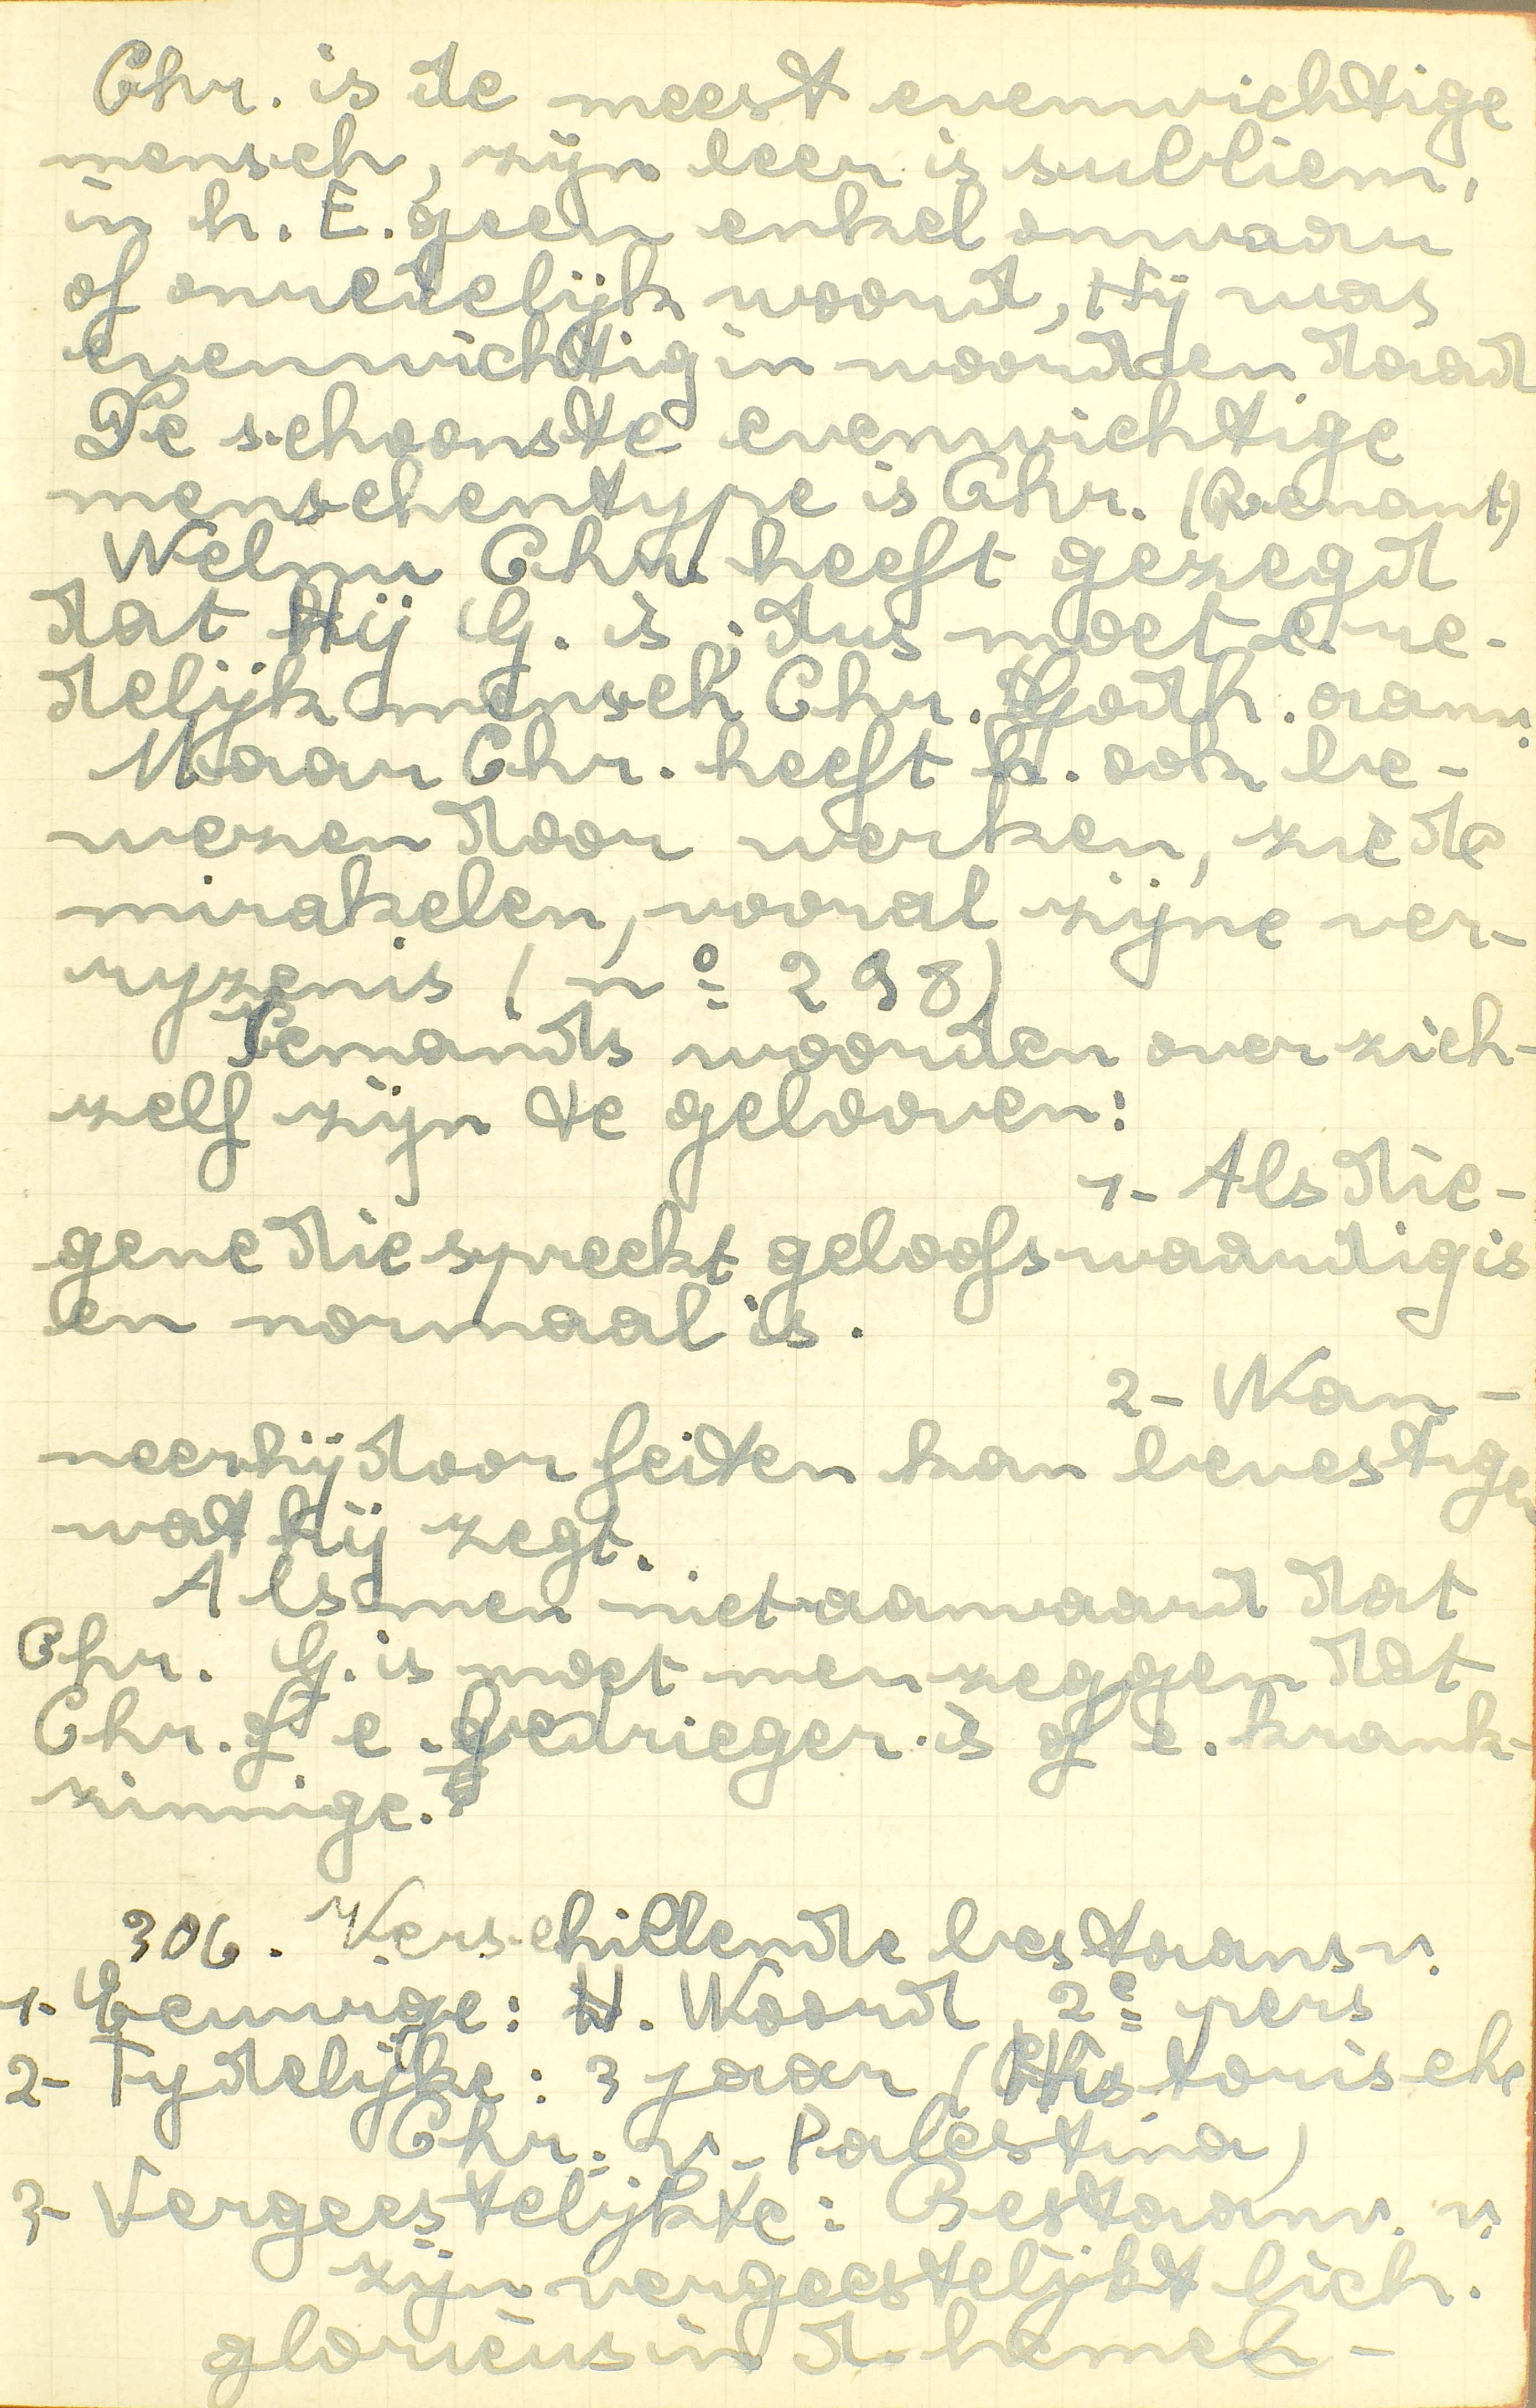 Chr. is de meest evenwichtige
mensch, zijn leer is subliem,
in h. E. geen enkel onwaar
of onredelijk woord, Hij was
evenwichtig in woord en daad
De schoonste evenwichtige
menschentype is Chr. (Renant)
Welnu Chr. heeft gezegd
dat Hij G. is, dus moet e. re-
delijk mensch Chr. Godh. aanv.
Maar Chr. heeft h. ook be-
wezen door werken, zie de
mirakelen, vooral zijne ver-
ryzenis (nº 298)
Iemands woorden over zich-
zelf zijn te gelooven:
1- Als die-
gene die spreekt geloofswaardig is
en normaal is.
2- Wan-
neer hij door feiten kan bevestigen
wat hij zegt.
Als men niet aanvaard dat
Chr. G. is moet men zeggen dat
Chr. of e. bedrieger is of e. krank-
zinnige.
306. Verschillende bestaansv.
1. Eeuwige: H. Woord 2e pers
2- Tydelijke: 3 jaar (Historische
Chr. v. Palestina)
3- Vergeestelijkte: Bestaanv. v.
zijn vergeestelijkt lich.
glorieus in d. hemel-